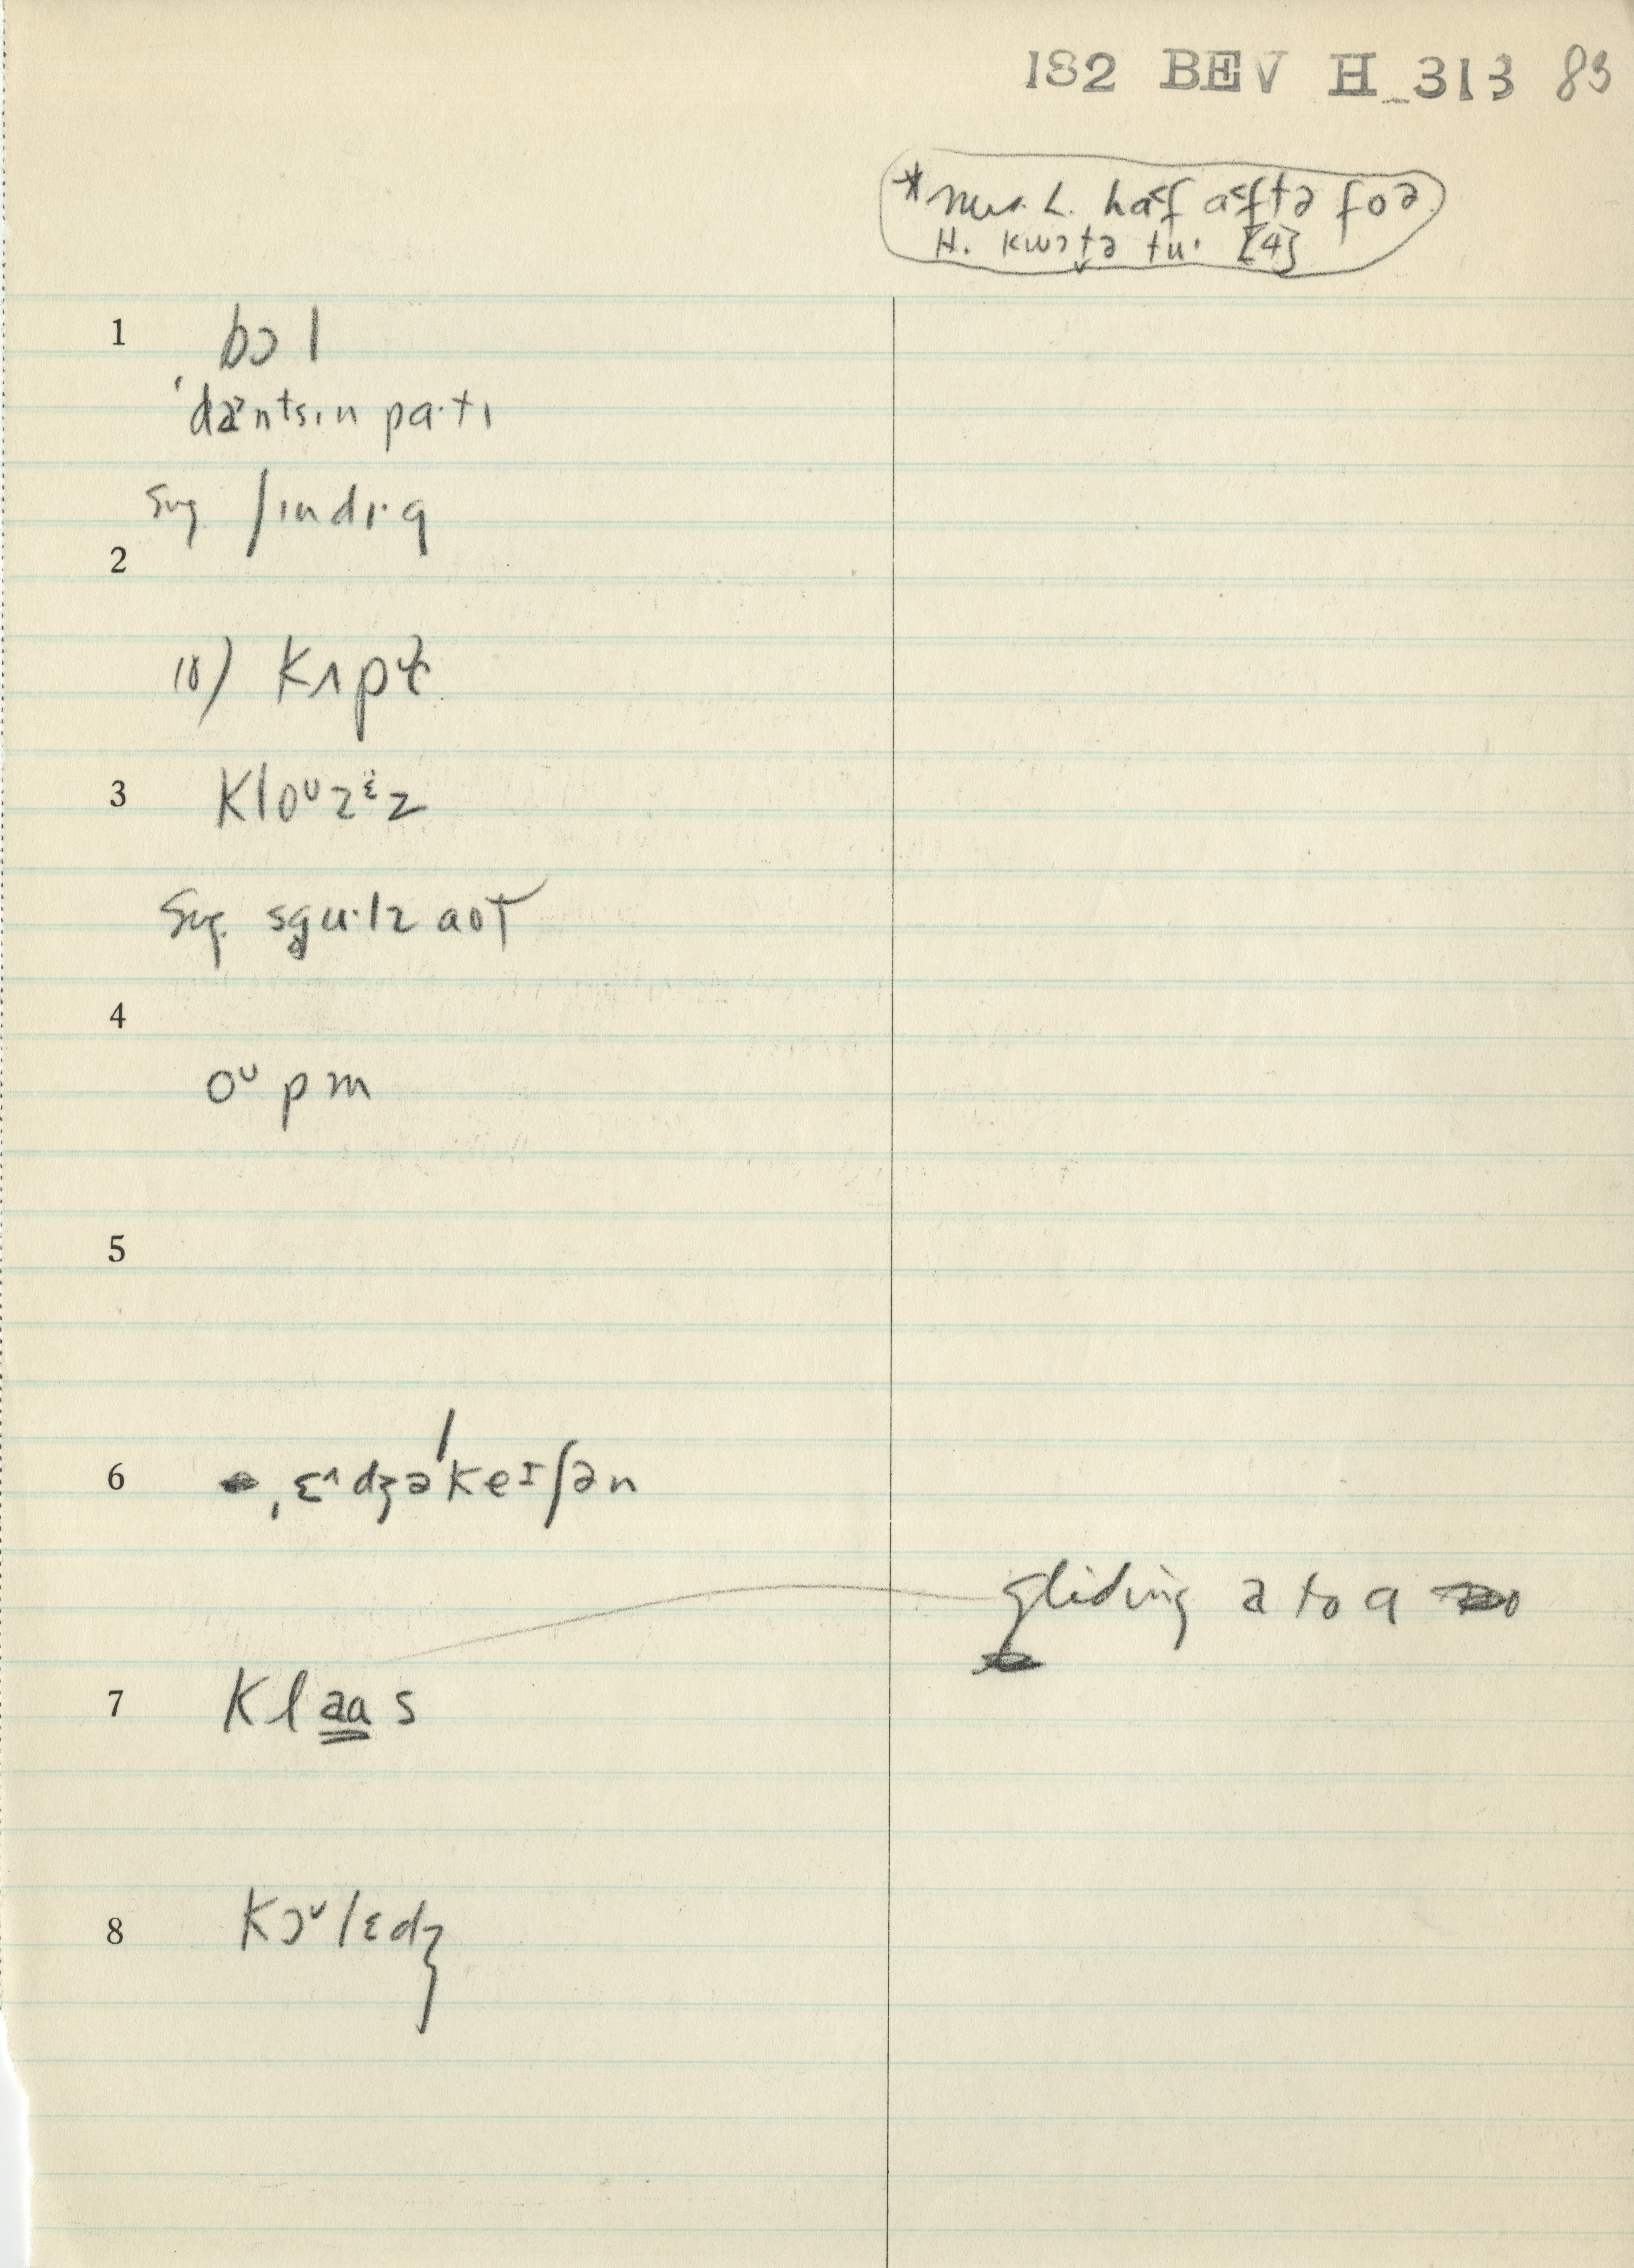 182 BEV H_313 83
*Mrs. L. ha˂f a˂ftə foə
H. kwɔt̬ə tu· [4]
1 bɔl
ˈdæ˃ntsɪn pa·tɪ
Sug. ʃɪndɪ·g
2
10) kʌpɫ
3 kloᶷzᵋz
Sug. sgu·lz aʊt
4
oᶷpm
5
6 ˌɛ^dʒəˈkeɪʃən
gliding a to ɑ
7 klaɑs
8 kɔ˅lɛdʒ